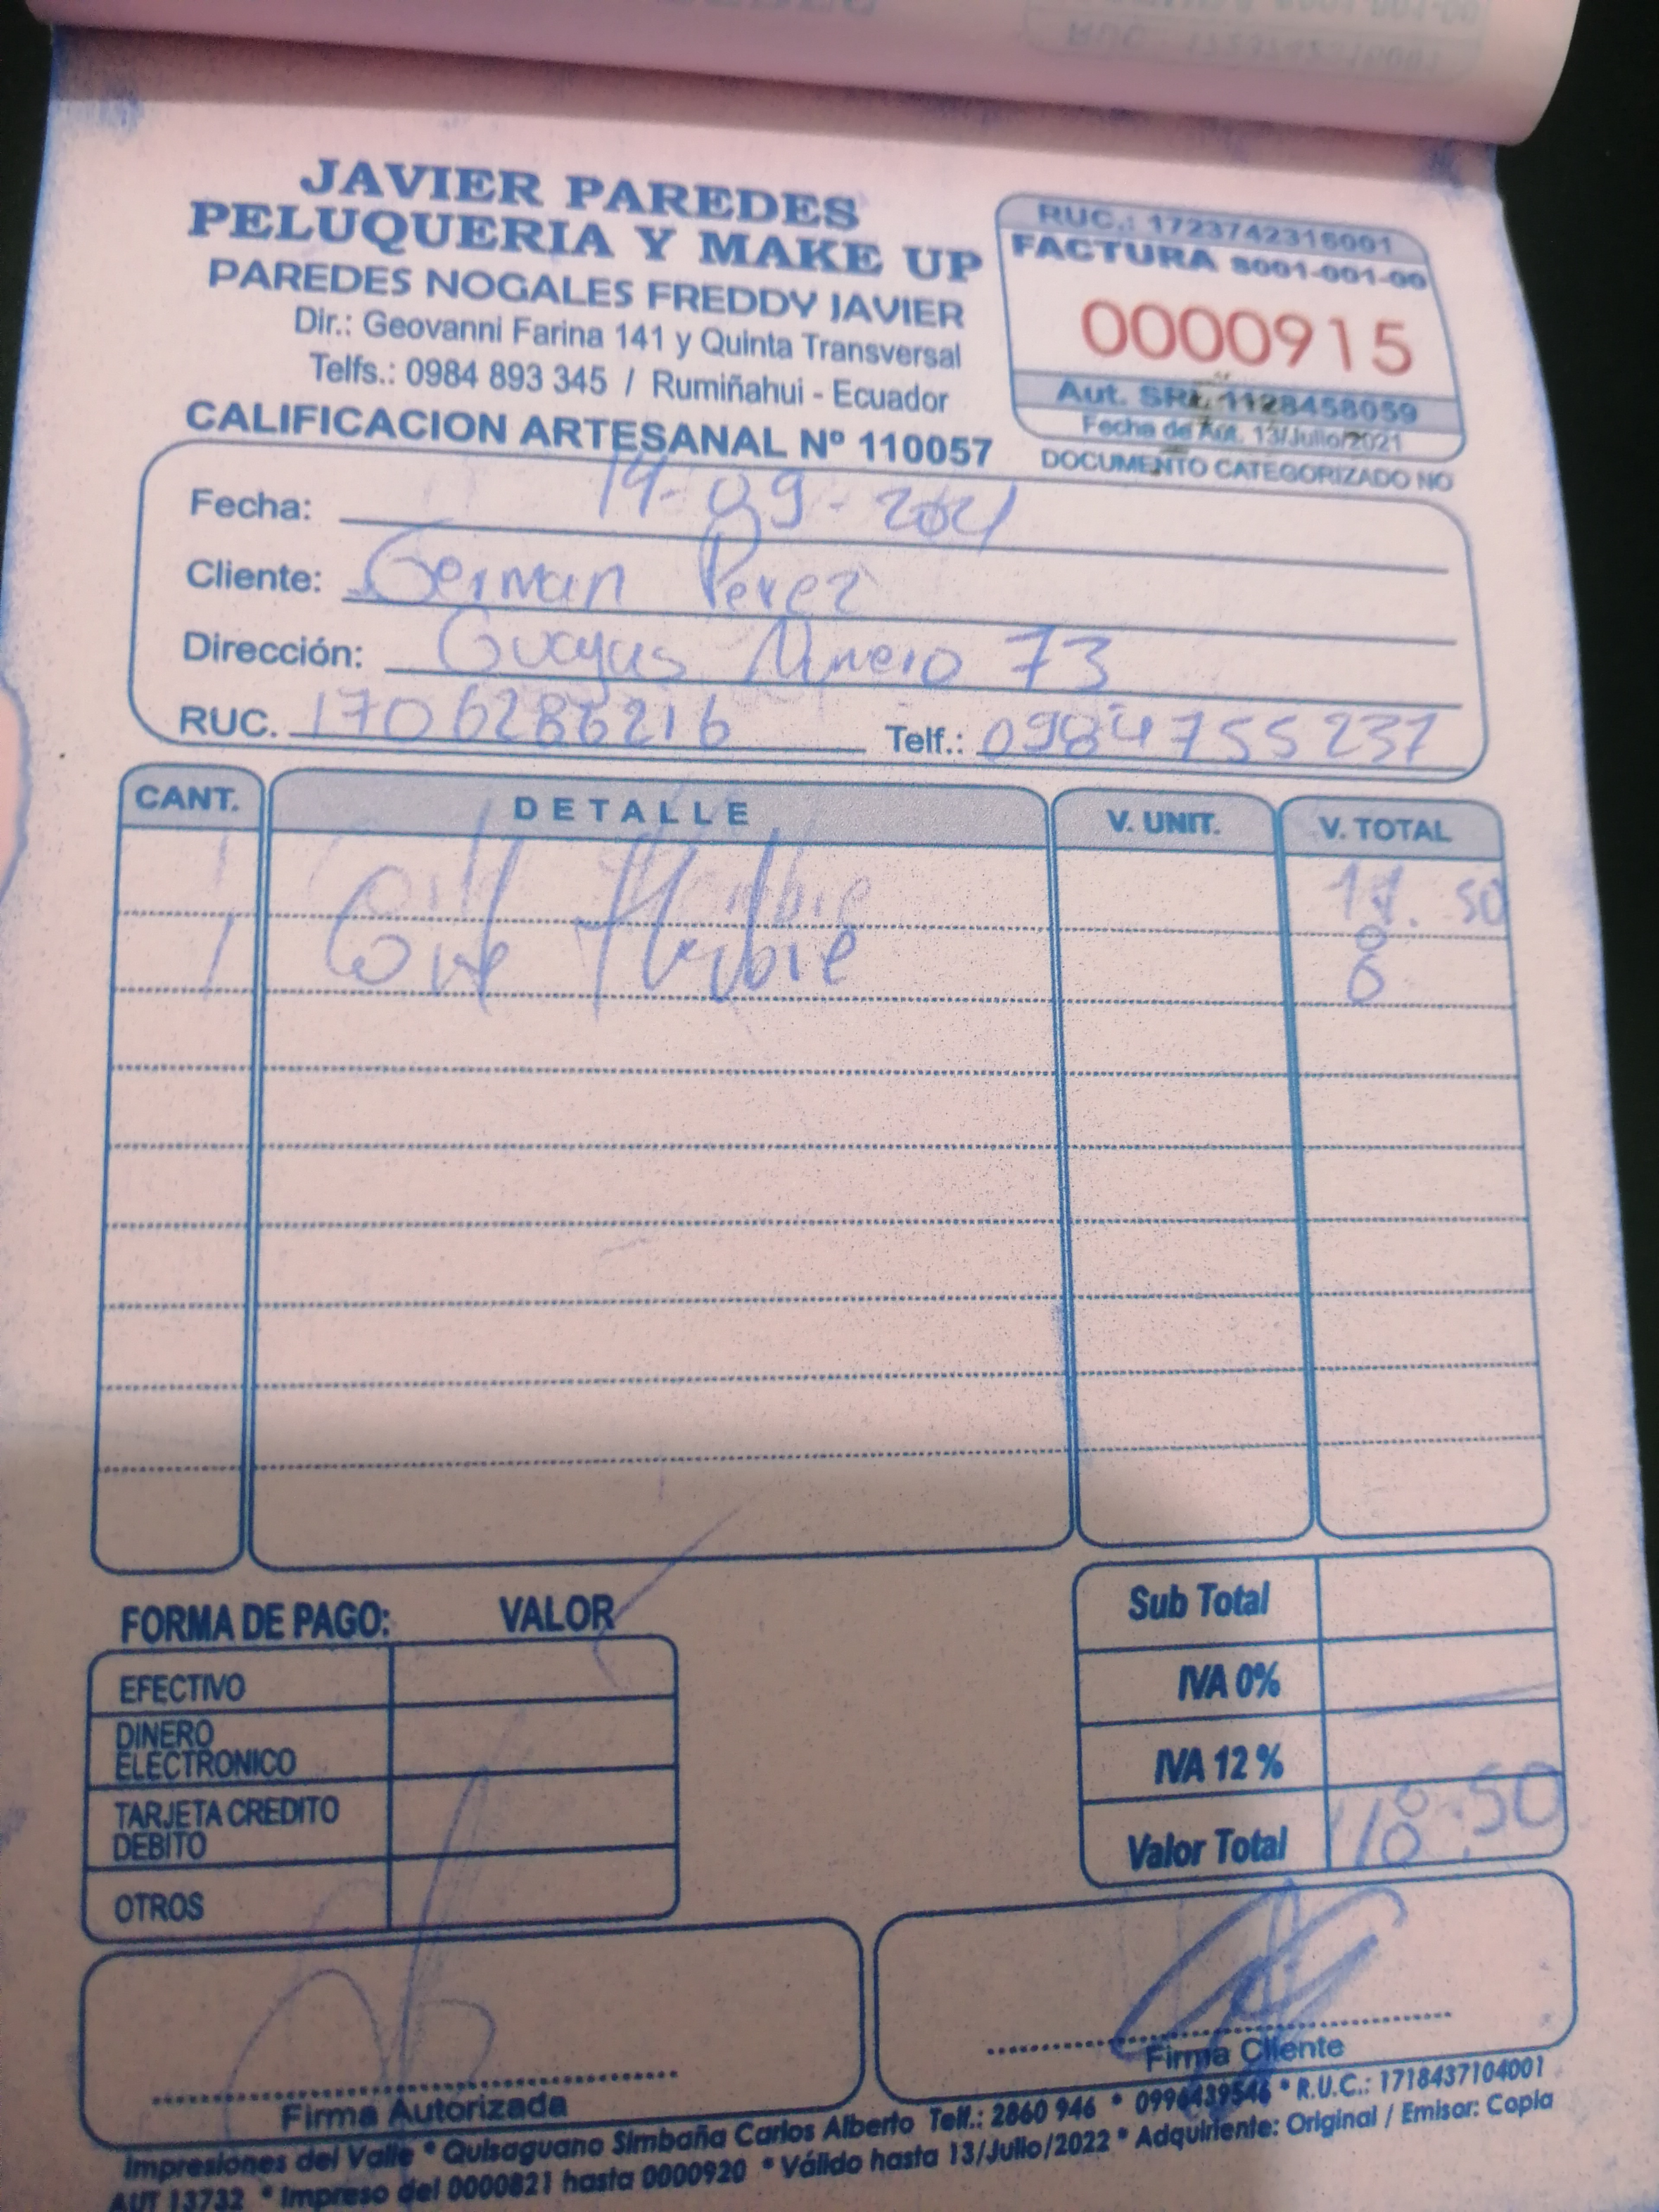 JAVIER PAREDES
PELUQUERIA Y MAKE UP
PAREDES NOGALES FREDDY JAVIER
Dir.: Geovanni Farina 141 y Quinta Transversal
Telfs.: 0984 893 345 / Rumiñahui - Ecuador
CALIFICACION ARTESANAL Nº 110057
RUC.: 1723742316001
FACTURA S001-001-00
0000915
Aut. SRI. 1128458059
Fecha de Aut. 13/Julio/2021
DOCUMENTO CATEGORIZADO NO
Fecha: 14-09-2021
Cliente: German Perez
Dirección: Guayas Numero 73
RUC. 1706286216 Telf.: 0984755237
CANT. DETALLE V. UNIT. V. TOTAL
1 .50
1 6
FORMA DE PAGO: VALOR
EFECTIVO
DINERO
ELECTRONICO
TARJETA CREDITO
DEBITO
OTROS
Sub Total
IVA 0%
IVA 12 %
Valor Total
Firma Autorizada
Firma Cliente
Impresiones del Valle * Quisaguano Simbaña Carlos Alberto Telf.: 2860 946 * 0996439546 * R.U.C.: 1718437104001
AUT 13732 * Impreso del 0000821 hasta 0000920 * Válido hasta 13/Julio/2022 * Adquiriente: Original / Emisor: Copia